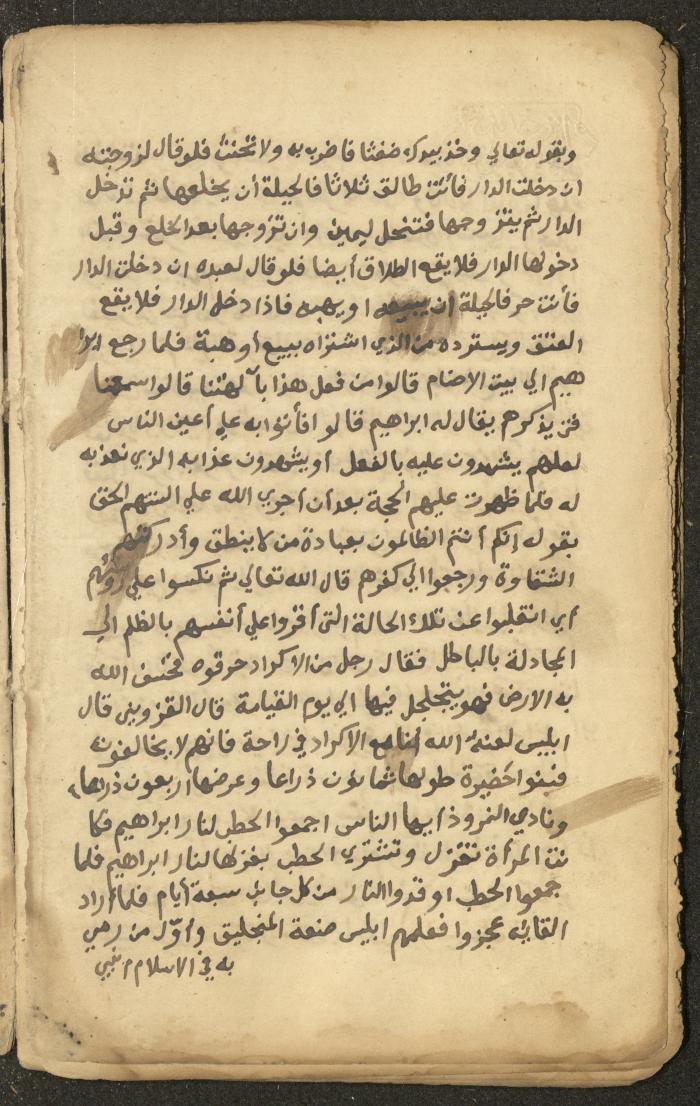 وبقوله تعالي وخذ بيدك ضغثا فاضرب به ولا تحنث فلو قال لزوجته
ان دخلت الدار فأنت طالق ثلاثا فالحيلة أن يخلعها ثم تدخل
الدار ثم يتزوجها فتنحل ليمين وان تزوجها بعد الخلع وقبل
دخولها الدار فلا يقع الطلاق أيضا فلو قال لعبده ان دخلت الدار
فأنت حر فالحيلة ان يبيعه او يهبه فاذا دخل الدار فلا يقع
العتق ويسترده من الذي اشتراه ببيع أو هبة فلما رجع ابرا
هيم الي بيت الاصنام قالوا من فعل هذا بآلهتنا قالوا سمعنا
فتي يذكرهم يقال له ابراهيم قالوا فأتوا به علي أعين الناس
لعلهم يشهدون عليه بالفعل أو يشهدون عذابه الذي نعذبه
له فلما ظهرت عليهم الحجة بعد أن أجري الله علي السنتهم الحق
بقوله إنكم أنتم الظالمون بعبادة من لا ينطق وأدركتهم
الشقاوة ورجعوا الي كفرهم قال الله تعالي ثم نكسوا علي رؤسهم
أي انقلبوا عن تلك الحالة التي أقروا علي أنفسهم بالظلم الي
المجادلة بالباطل فقال رجل من الاكراد حرقوه فخسف الله
به الارض فهو يتجلجل فيها الي يوم القيامة قال القزويني قال
ابليس لعنه الله أنا مع الاكراد في راحة فانهم لا يخالفون
فبنوا حضيرة طولها ثمانون ذراعا وعرضها اربعون ذراعا
ونادي النمروذ ايها الناس اجمعوا الحطب لنار ابراهيم فكا
نت المرأة تغزل وتشتري الحطب بغزلها لنار ابراهيم فلما
جمعوا الحطب اوقدوا النار من كل جانب سبعة أيام فلما أراد
القائه عجزوا فعلمهم ابليس صنعة المنجليق وأوّل من رمي
به في الاسلام النبي